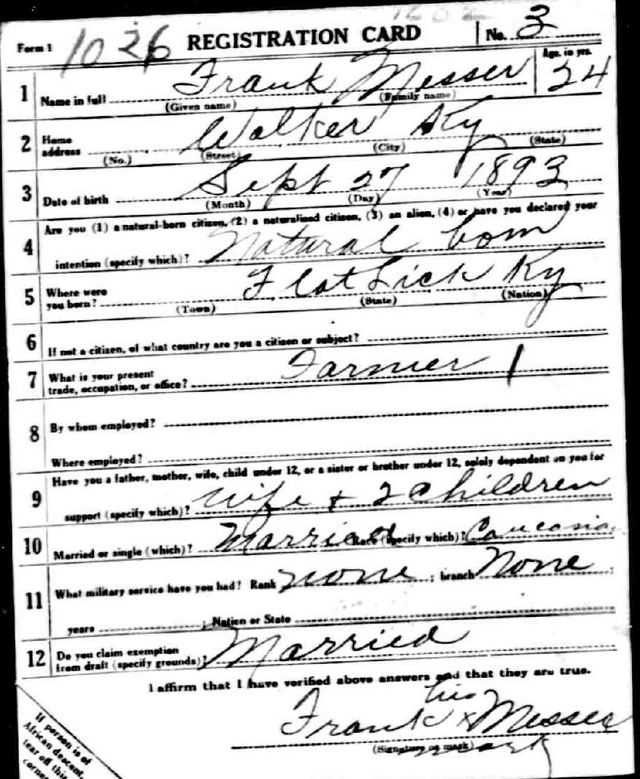 Form 1 1026 REGISTRATION CARD No. 3
1 Name in full Frank Messer Age, in yrs. 24
(Given name) (Family name)
2 Home address Walker Ky
(No.) (Street) (City) (State)
3 Date of birth Sept 27 1893
(Month) (Day) (Year)
Are you (1) a natural-born citizen, (2) a naturalized citizen, (3) an alien, (4) or have you declared your
4 intention (specify which)? Natural born
5 Where were you born? Flat Lick Ky
(Town) (State) (Nation)
6 If not a citizen, of what country are you a citizen or subject?
7 What is your present trade, occupation, or office? Farmer 1
8 By whom employed?
Where employed?
Have you a father, mother, wife, child under 12, or a sister or brother under 12, solely dependent on you for
9 support (specify which)? Wife + 2 Children
10 Married or single (which)? Married Race (specify which)? Caucasian
11 What military service have you had? Rank None ; branch None
years ; Nation or State
12 Do you claim exemption from draft (specify grounds)? Married
I affirm that I have verified above answers and that they are true.
his
Frank x Messer
(Signature or mark) mark
If person is of
African descent,
tear off this
corner